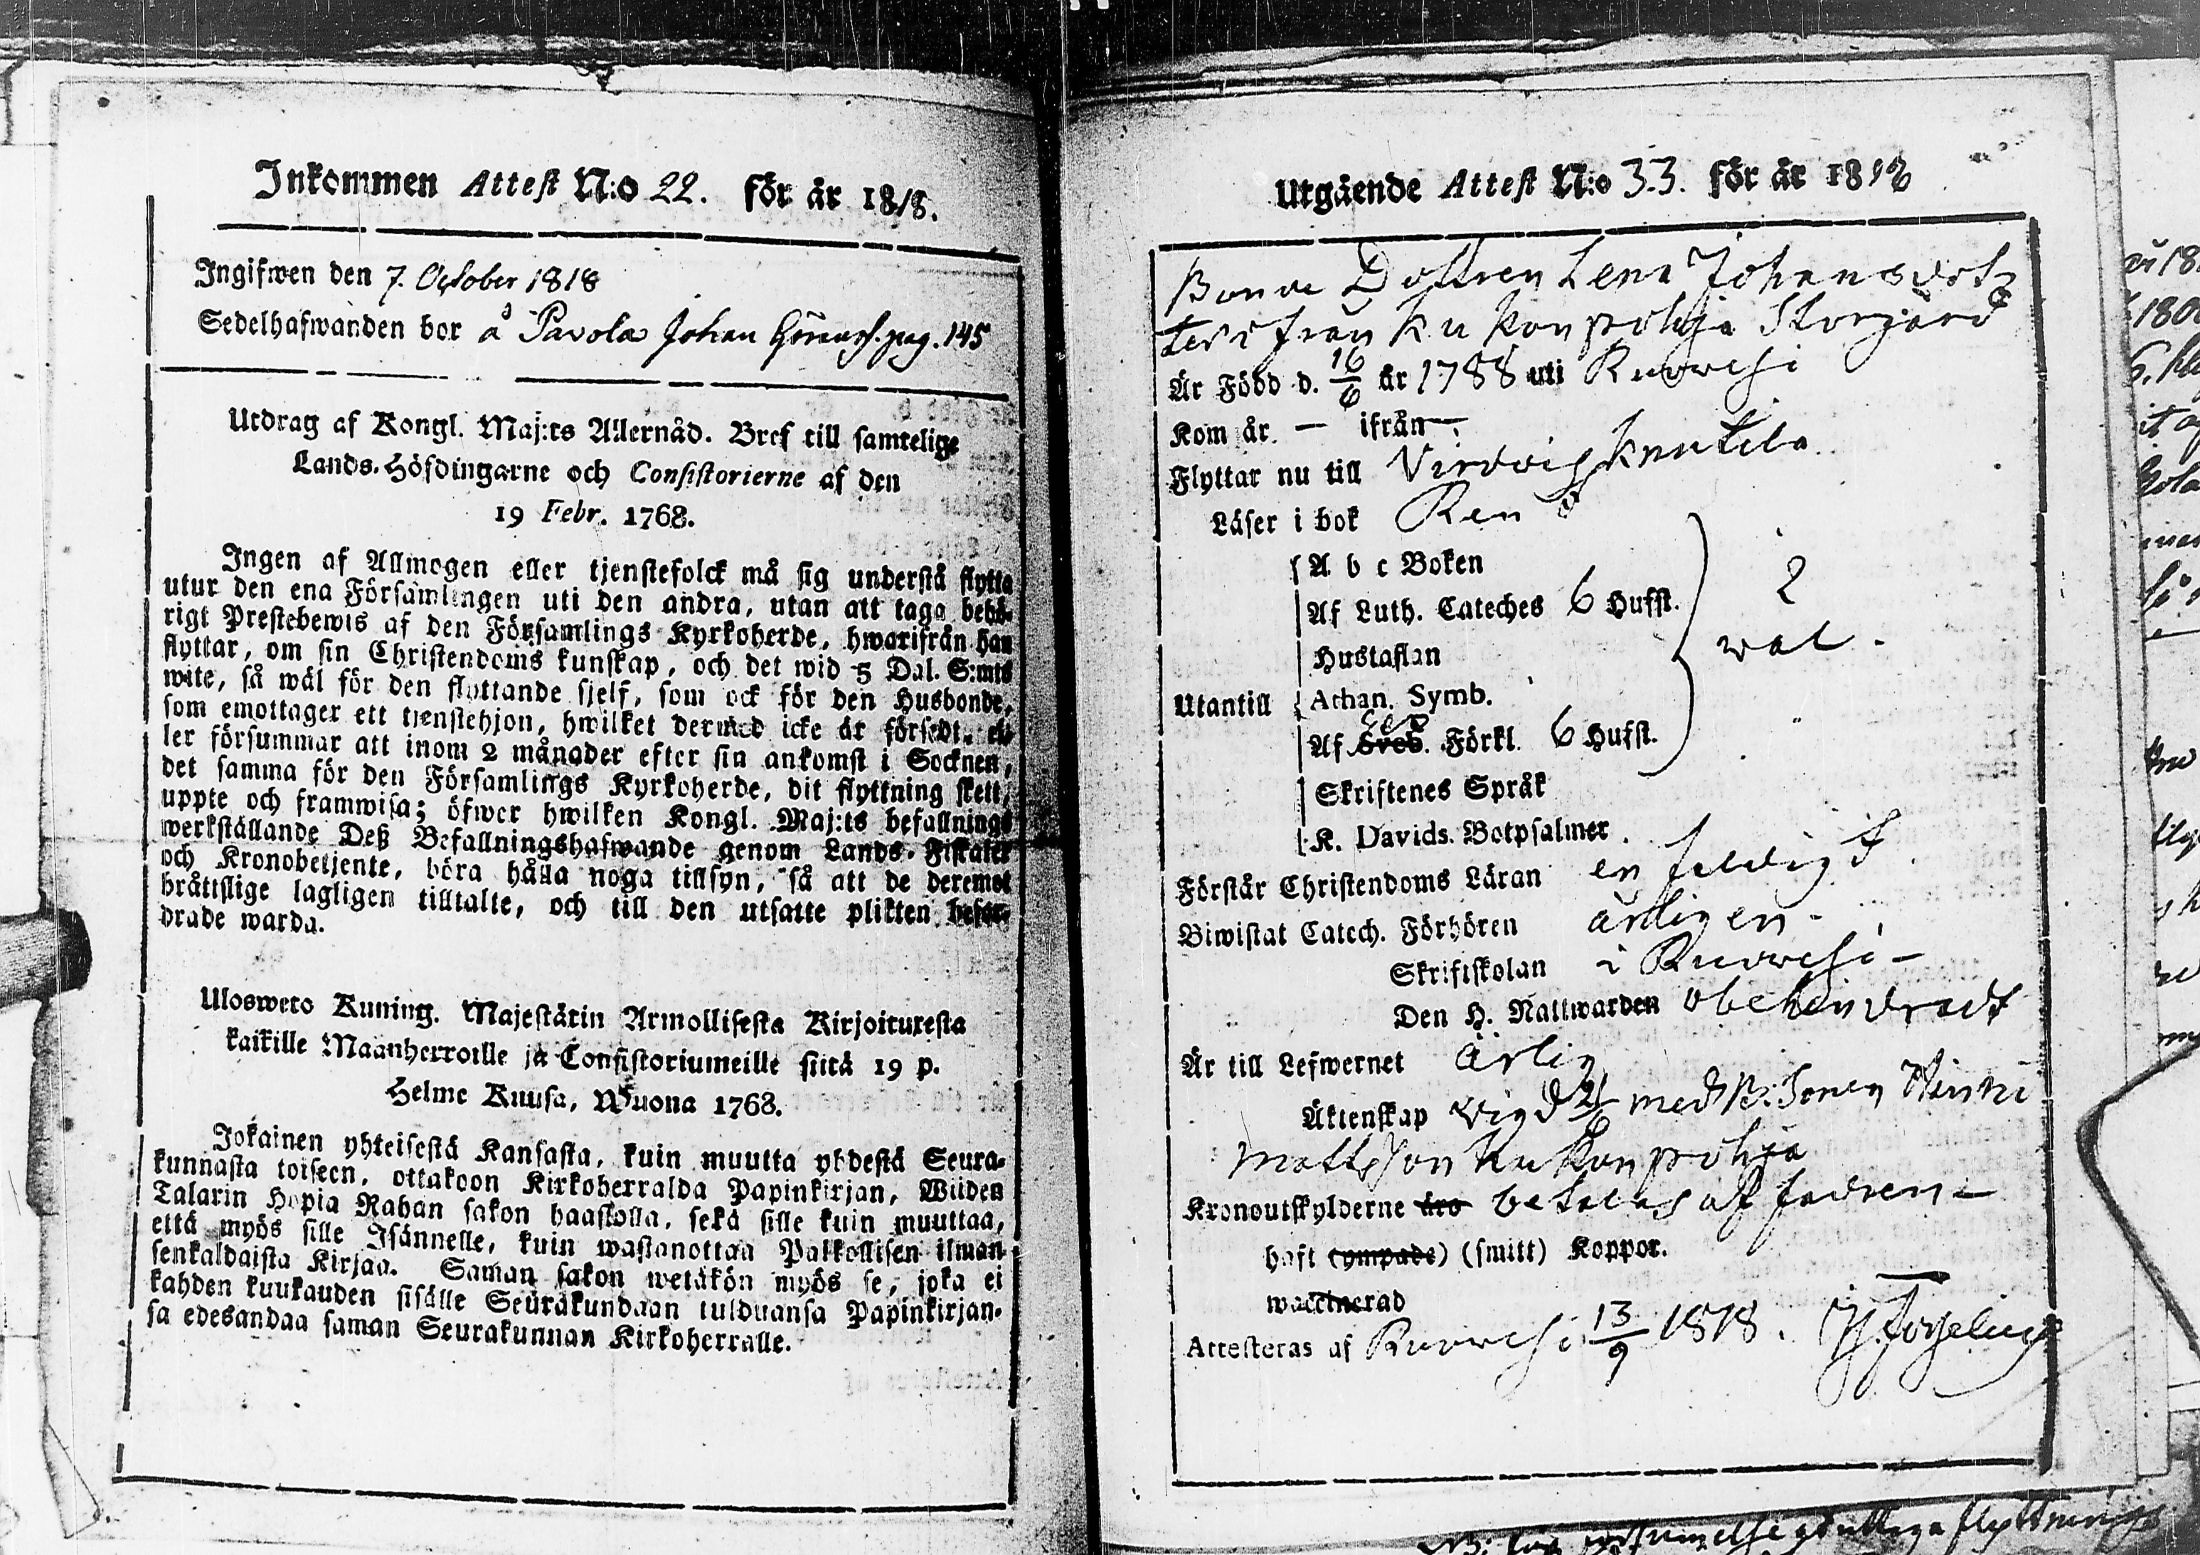 Inkommen Attest N:o 22. för år 1818.
Ingifwen den 7. October 1818
Sedelhafwanden bor å Pavola Johan pag. 145
Utdrag af Kongl. Maj:ts Allernåd. Bref till samtelige
Lands-Höfdingarne och Consistorierne af den
19 Febr. 1768.
Ingen af Allmogen eller tjenstefolck må sig understå flytta
utur den ena Församlingen uti den andra, utan att taga behö-
rigt Prestebewis af den Församlings Kyrkoherde, hwarifrån han
flyttar, om sin Christendoms kunskap, och det wid 5 Dal. S:mts
wite, så wäl för den flyttande sjelf, som ock för den Husbonde,
som emottager ett tjenstehjon, hwilket dermed icke är försedt, el-
ler försummar att inom 2 månader efter sin ankomst i Socknen,
det samma för den Församlings Kyrkoherde, dit flyttning skett,
uppte och framwisa; öfwer hwilken Kongl. Maj:ts befallnings
werkställande Deß Befallningshafwande genom Lands-Fiskaler
och Kronobetjente, böra hålla noga tillsyn, så att de deremot
bråttslige lagligen tilltalte, och till den utsatte plikten befor-
drade warda.
Uloswero Kuning. Majestätin Armollisesta Kirjoituxesta
kaikille Maanherroille ja Consistoriumeille siitä 19 p.
Helme Kuusa, Wuona 1768.
Jokainen yhteisestä Kansasta, kuin muutta yhdestä Seura-
kunnasta toiseen, ottakoon Kirkoherralda Papinkirjan, Wiiden
Talarin Hopia Rahan sakon haastolla, sekä sille kuin muuttaa,
että myös sille Isännelle, kuin wastanottaa Palkollisen ilman
senkaldaista Kirjaa. Saman sakon wetäkön myös se, joka ei
kahden kuukauden sisälle Seurakundaan tulduansa Papinkirjan-
sa edesandaa saman Seurakunnan Kirkoherralle.
Utgående Attest N:o 33. för år 1818
Bonde Dottren Lena Johansdot
ter ifrån Kukonpohja Storgård
Är Född d. 16/6 år 1788 uti Ruovesi
Kom år. — ifrån —
Flyttar nu till Virdois Knutila
Läser i bok Ren
Utantill
A b c Boken
Af Luth. Cateches 6 Hufst.
Hustaflan
Athan. Symb.
Af Sveb. Förkl. 6 Hufst.
Skriftenes Språk
K. Davids. Botpsalmer.
wäl.
Förstår Christendoms Läran enfaldigt.
Biwistat Catech. Förhören årligen -
Skriftskolan i Ruovesi -
Den H. Nattwarden obehindradt
Är till Lefwernet Ärlig
Äktenskap vigd med B: Sonen Henric
Mattsson Kukonpohja
Kronoutskylderne äro betalas af fadren -
haft (ympade) (smitt) Koppor.
waccinerad
Attesteras af Ruovesi 13/9 1818.